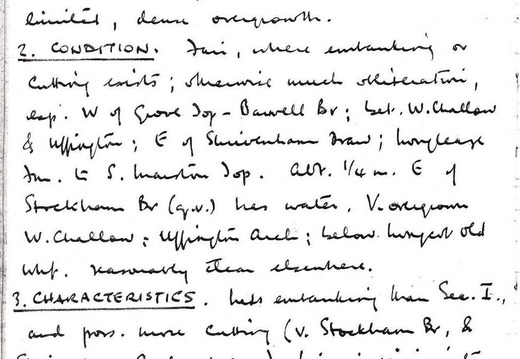 limited, dense overgrowth.
2. CONDITION. Fair, where embanking or
cutting exists; otherwise much obliteration,
esp. W of Grove Top - Barwell Br; bet. W. Challow
& Uffington; E of Shrivenham Draw; Longleaze
Fm. to S. Marston Top. Abt. 1/4 m. E of
Stockham Br (q.v.) has water. V. overgrown
W. Challow - Uffington Arch; below longest old
whf. reasonably clear elsewhere.
3. CHARACTERISTICS. Less embanking than Sec. I.,
and poss. more cutting (v. Stockham Br, &